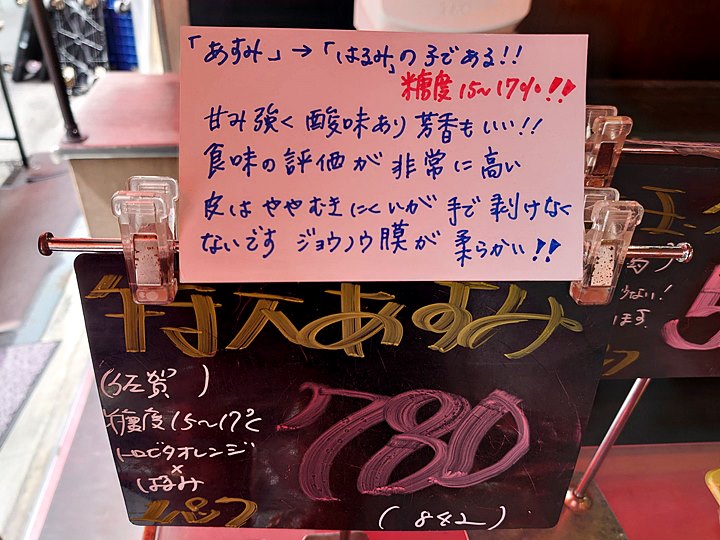 「あすみ」→「はるみ」の子である!!
糖度15〜17%!!
甘み強く酸味あり芳香もいい!!
食味の評価が非常に高い
皮はややむきにくいが手で剥けなく
ないです ジョウノウ膜が柔らかい!!
特大あすみ
(佐賀)
糖度15〜17℃
トロビタオレンジ
×
はるみ
1パック
780
(842)
ります